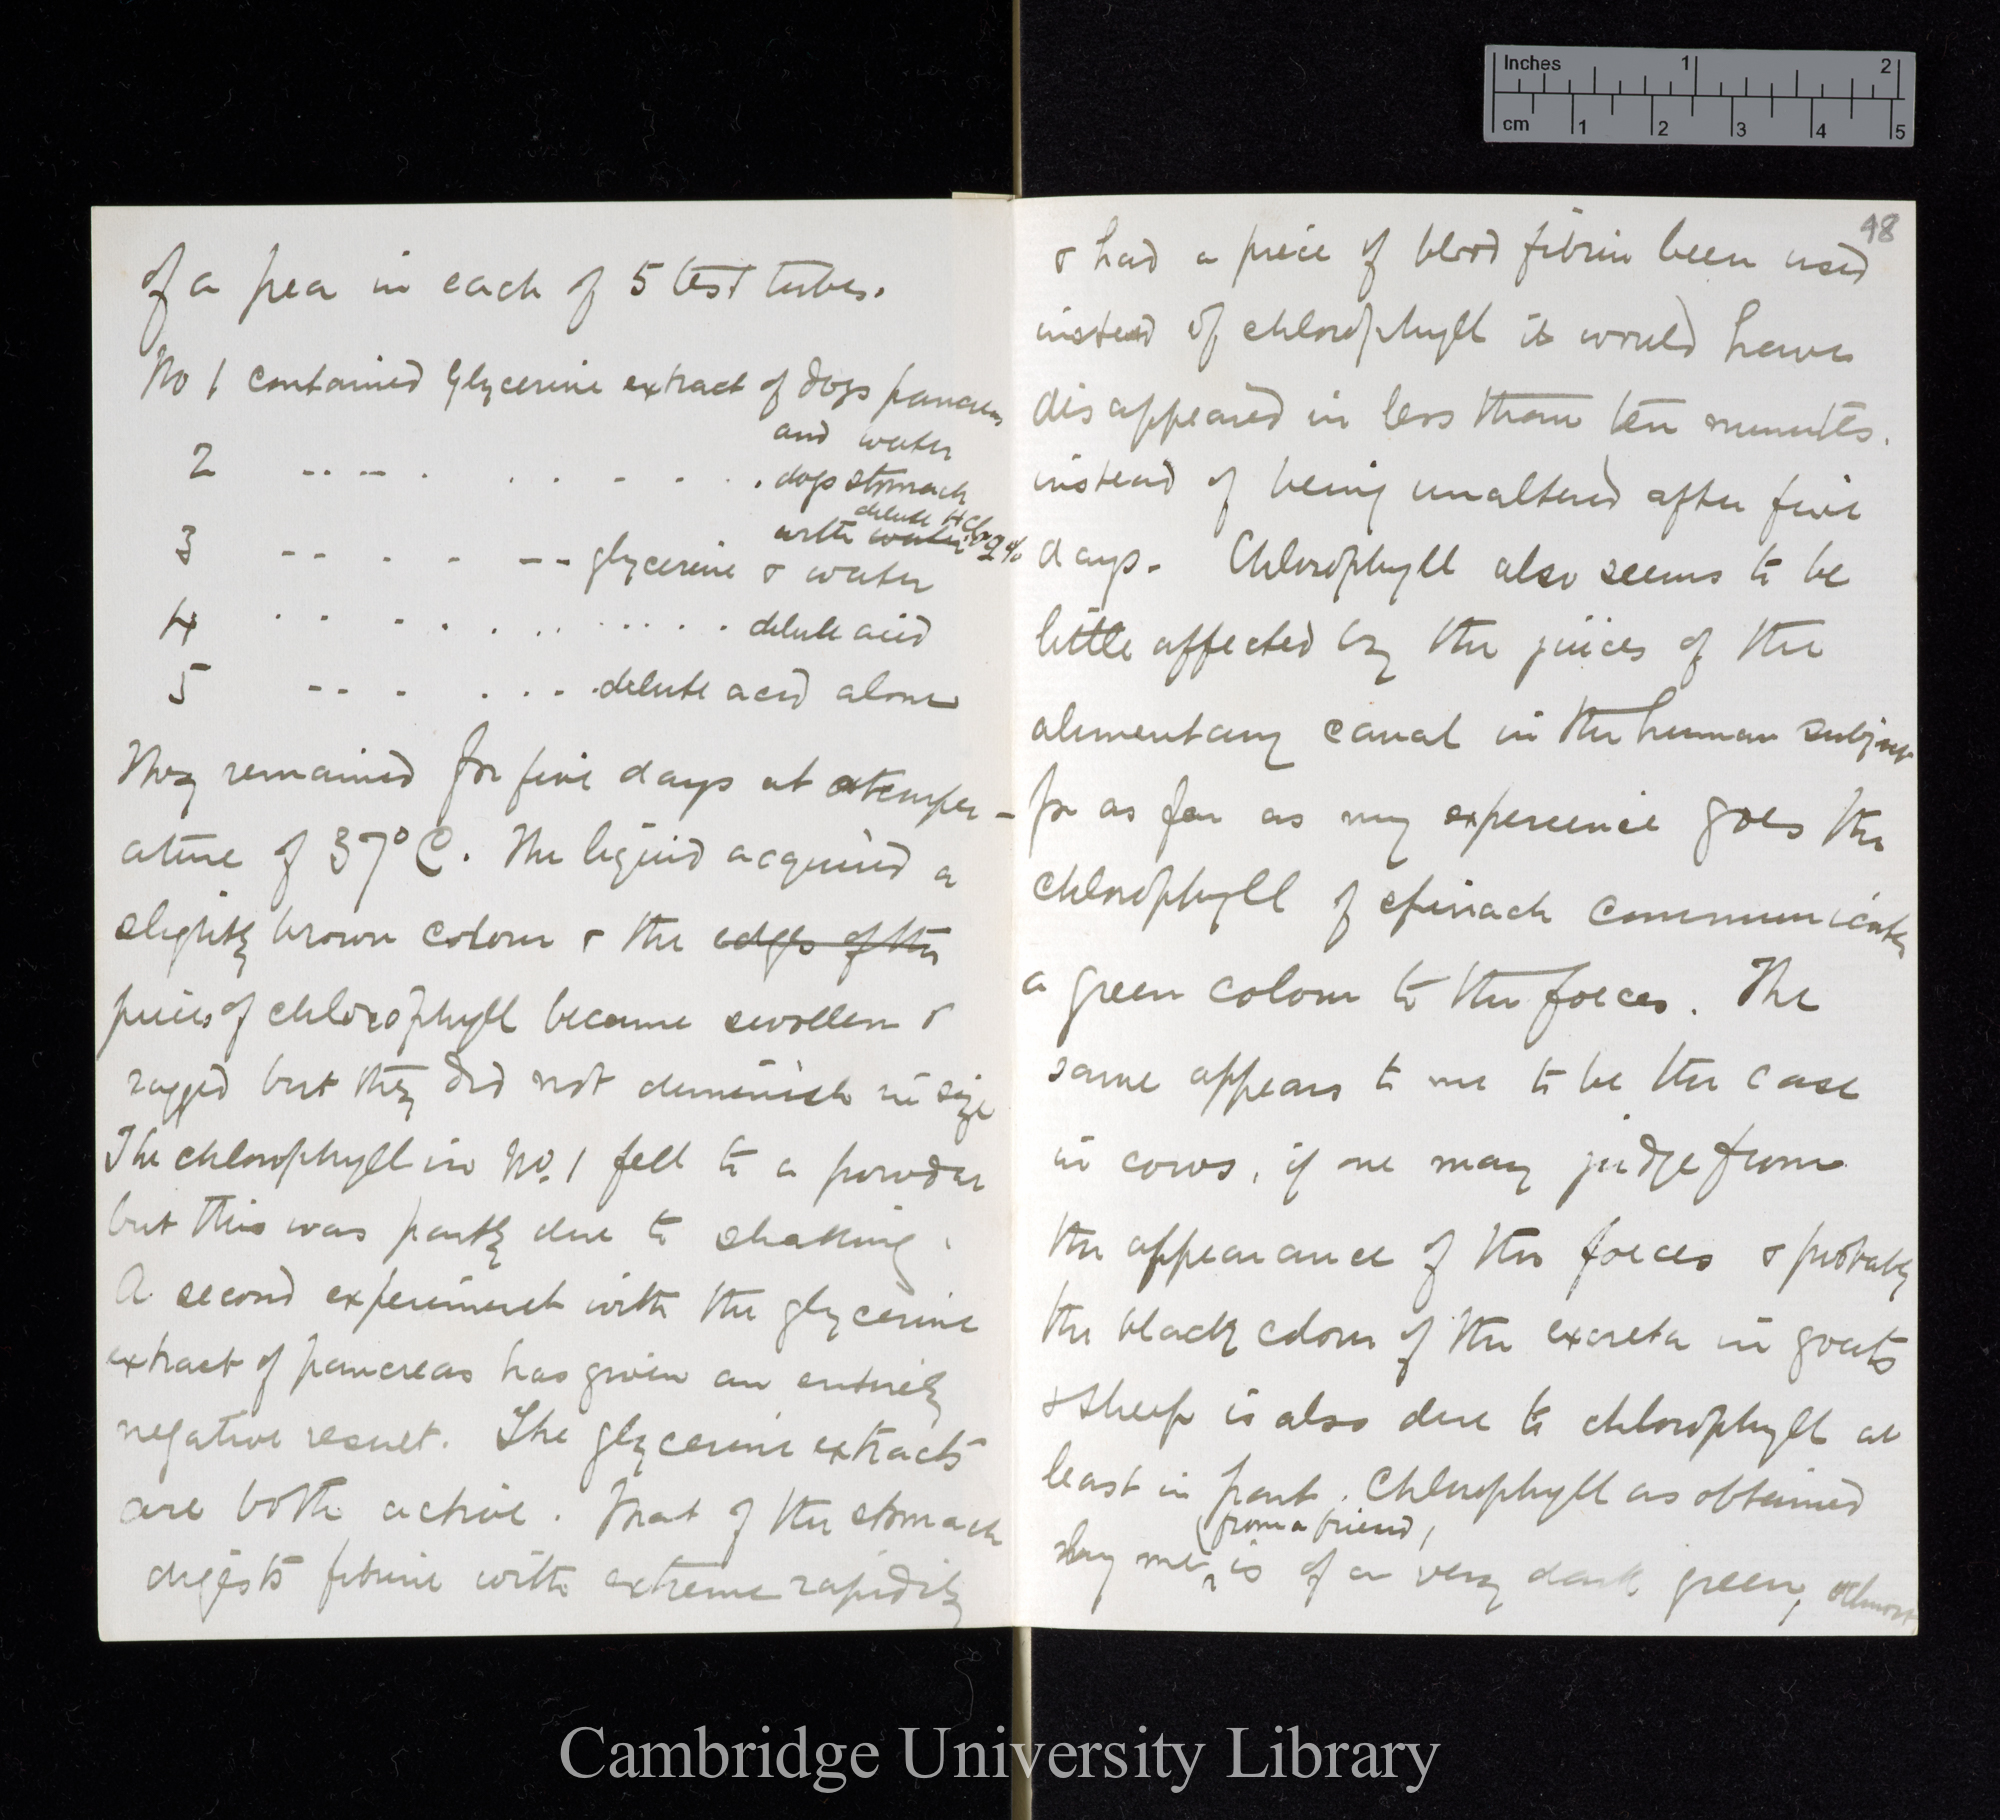 of a pea in each of 5 test tubes.
No 1 contained Glycerine extract of dogs pancreas
and water
2 -- -- . . . - . - . . dogs stomach
dilute HCl .2 %
with water
3 -- . - . -- glycerine & water
4 . . . . . . . . . . . . dilute acid
5 -- . . . . - . dilute acid alone
They remained for five days at a temper-
ature of 37° C. The liquid acquired a
slightly brown colour & the edges of the
pieces of chlorophyll became swollen &
ragged but they did not diminish in size
The chlorophyll in No. 1 fell to a powder
but this was partly due to shaking.
A second experiment with the glycerine
extract of pancreas has given an entirely
negative result. The glycerine extracts
are both active. That of the stomach
digests fibrine with extreme rapidity
98
& had a piece of blood fibrin been used
instead of chlorophyll it would have
disappeared in less than ten minutes.
instead of being unaltered after five
days. Chlorophyll also seems to be
little affected by the juices of the
alimentary canal in the human subject
for as far as my experience goes the
chlorophyll of spinach communicates
a green colour to the foeces. The
same appears to me to be the case
in cows, if one may judge from
the appearance of the foeces & probably
the black colour of the excreta in goats
& sheep is also due to chlorophyll at
least in part. Chlorophyll as obtained
(from a friend,
by me is of a very dark green, almost
Inches 1 2
cm 1 2 3 4 5
Cambridge University Library